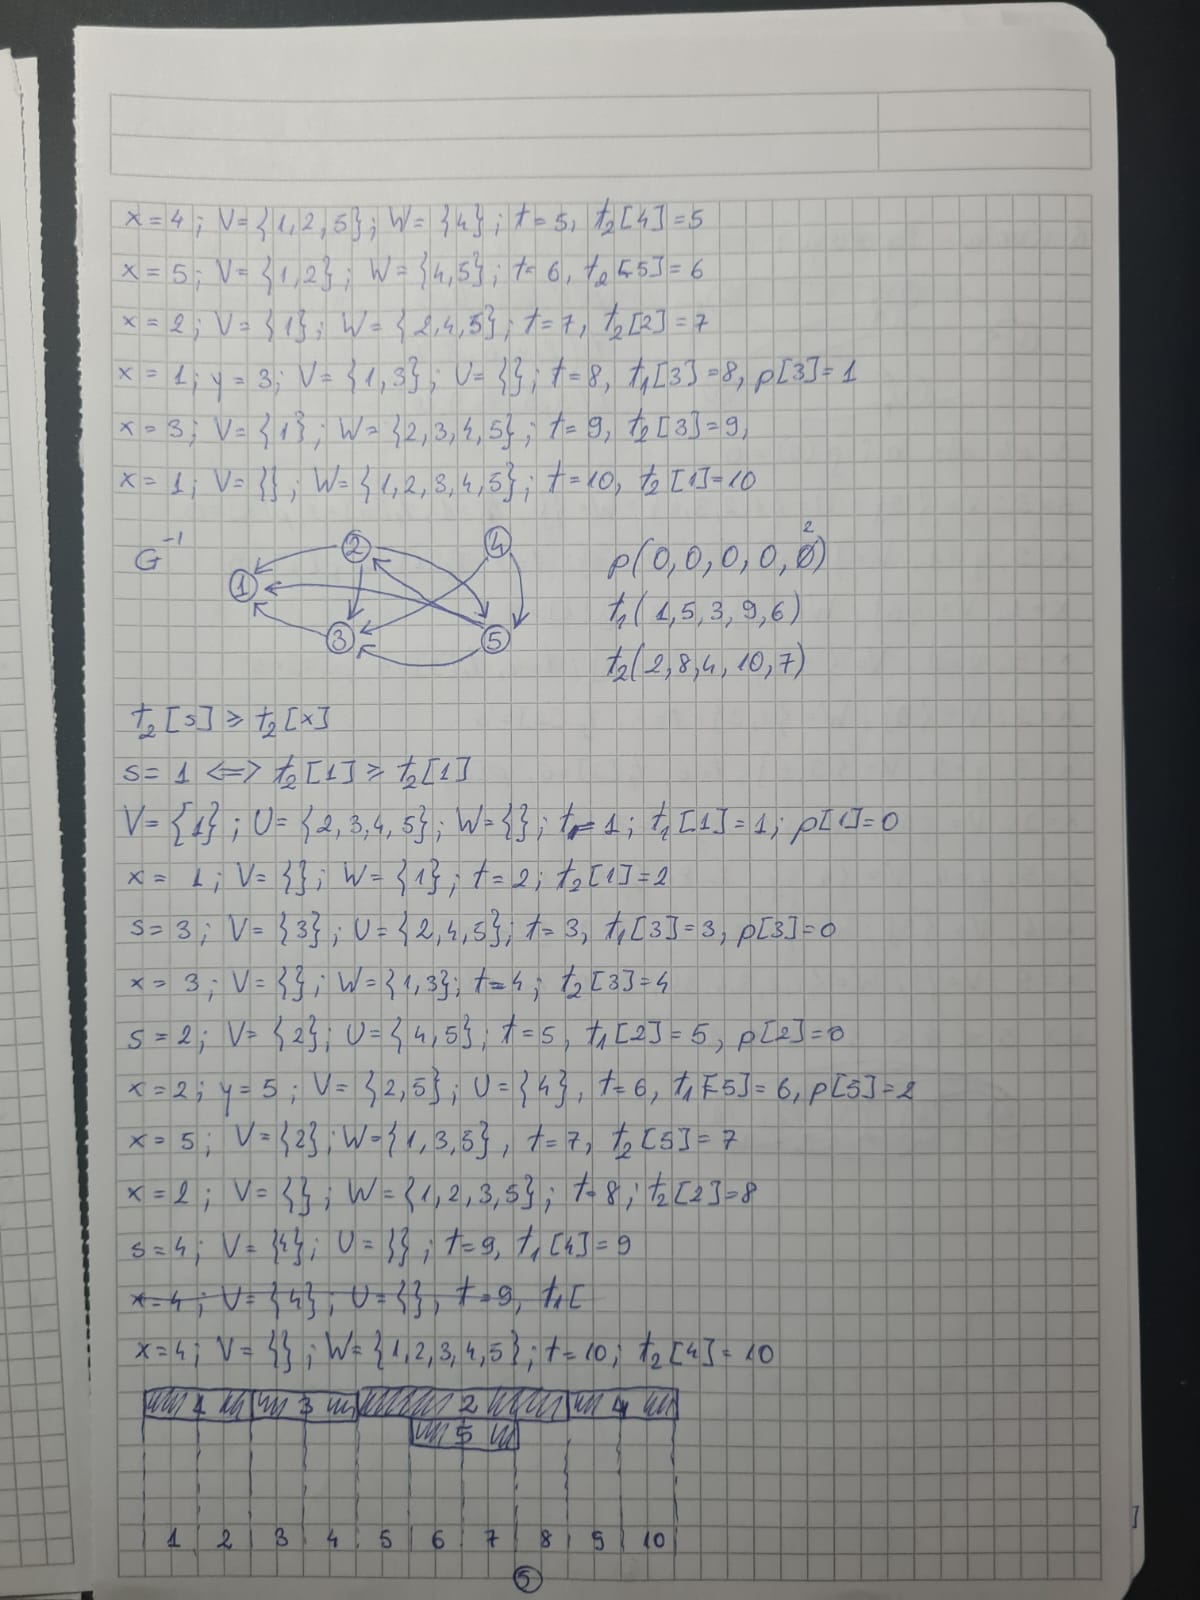 x = 4; V={1,2,5}; W= {4}; t=5, t₂[4]=5
x = 5; V={1,2}; W={4,5}; t= 6, t₂[5]= 6
x = 2; V={1}; W={2,4,5}; t=7, t₂[2]=7
x = 1; y = 3; V={1,3}; U= {}; t=8, t₁[3]=8, p[3]=1
x = 3; V={1}; W={2,3,4,5}; t= 9, t₂[3]=9,
x = 1; V={}; W={1,2,3,4,5}; t=10, t₂[1]=10
G⁻¹
2
4
1
3
5
2
p(0,0,0,0,0)
t₁(1,5,3,9,6)
t₂(2,8,4,10,7)
t₂[s] ≥ t₂[x]
s= 1 <=> t₂[1] ≥ t₂[1]
V={1}; U={2,3,4,5}; W={}; t=1; t₁[1]=1; p[1]=0
x = 1; V={}; W={1}; t=2; t₂[1]=2
s=3; V={3}; U={2,4,5}; t=3, t₁[3]=3, p[3]=0
x= 3; V={}; W={1,3}; t=4; t₂[3]=4
s=2; V={2}; U={4,5}; t=5, t₁[2]=5, p[2]=0
x=2; y=5; V={2,5}; U={4}, t=6, t₁[5]=6, p[5]=2
x = 5; V={2}; W={1,3,5}, t=7, t₂[5]=7
x=2; V={}; W={1,2,3,5}; t=8; t₂[2]=8
s=4; V={4}; U={}; t=9, t₁[4]=9
x=4; V={4}; U={}, t=9, t₁[
x=4; V={}; W={1,2,3,4,5}; t=10; t₂[4]=10
1 3 2 4
5
1 2 3 4 5 6 7 8 9 10
5